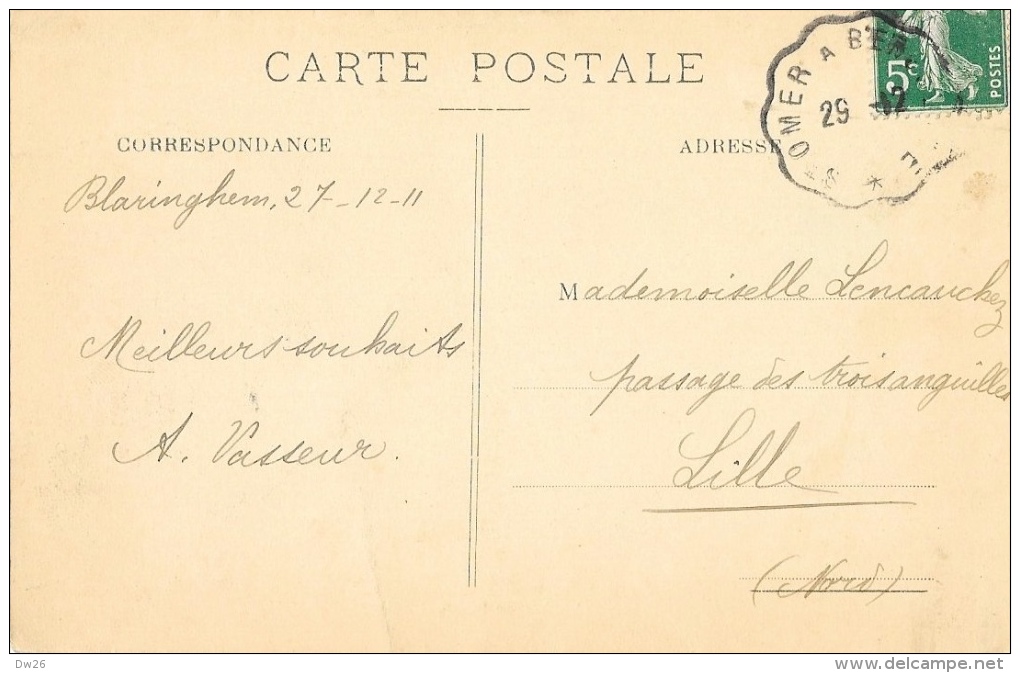 CARTE POSTALE
CORRESPONDANCE
Blaringhem, 27-12-11
Meilleurs souhaits
A. Vasseur.
ADRESSE
Mademoiselle Lencauchez
passage des trois anguilles
Lille
(Nord)
5c
POSTES
ST OMER A BER
29 -12
Dw26
www.delcampe.net